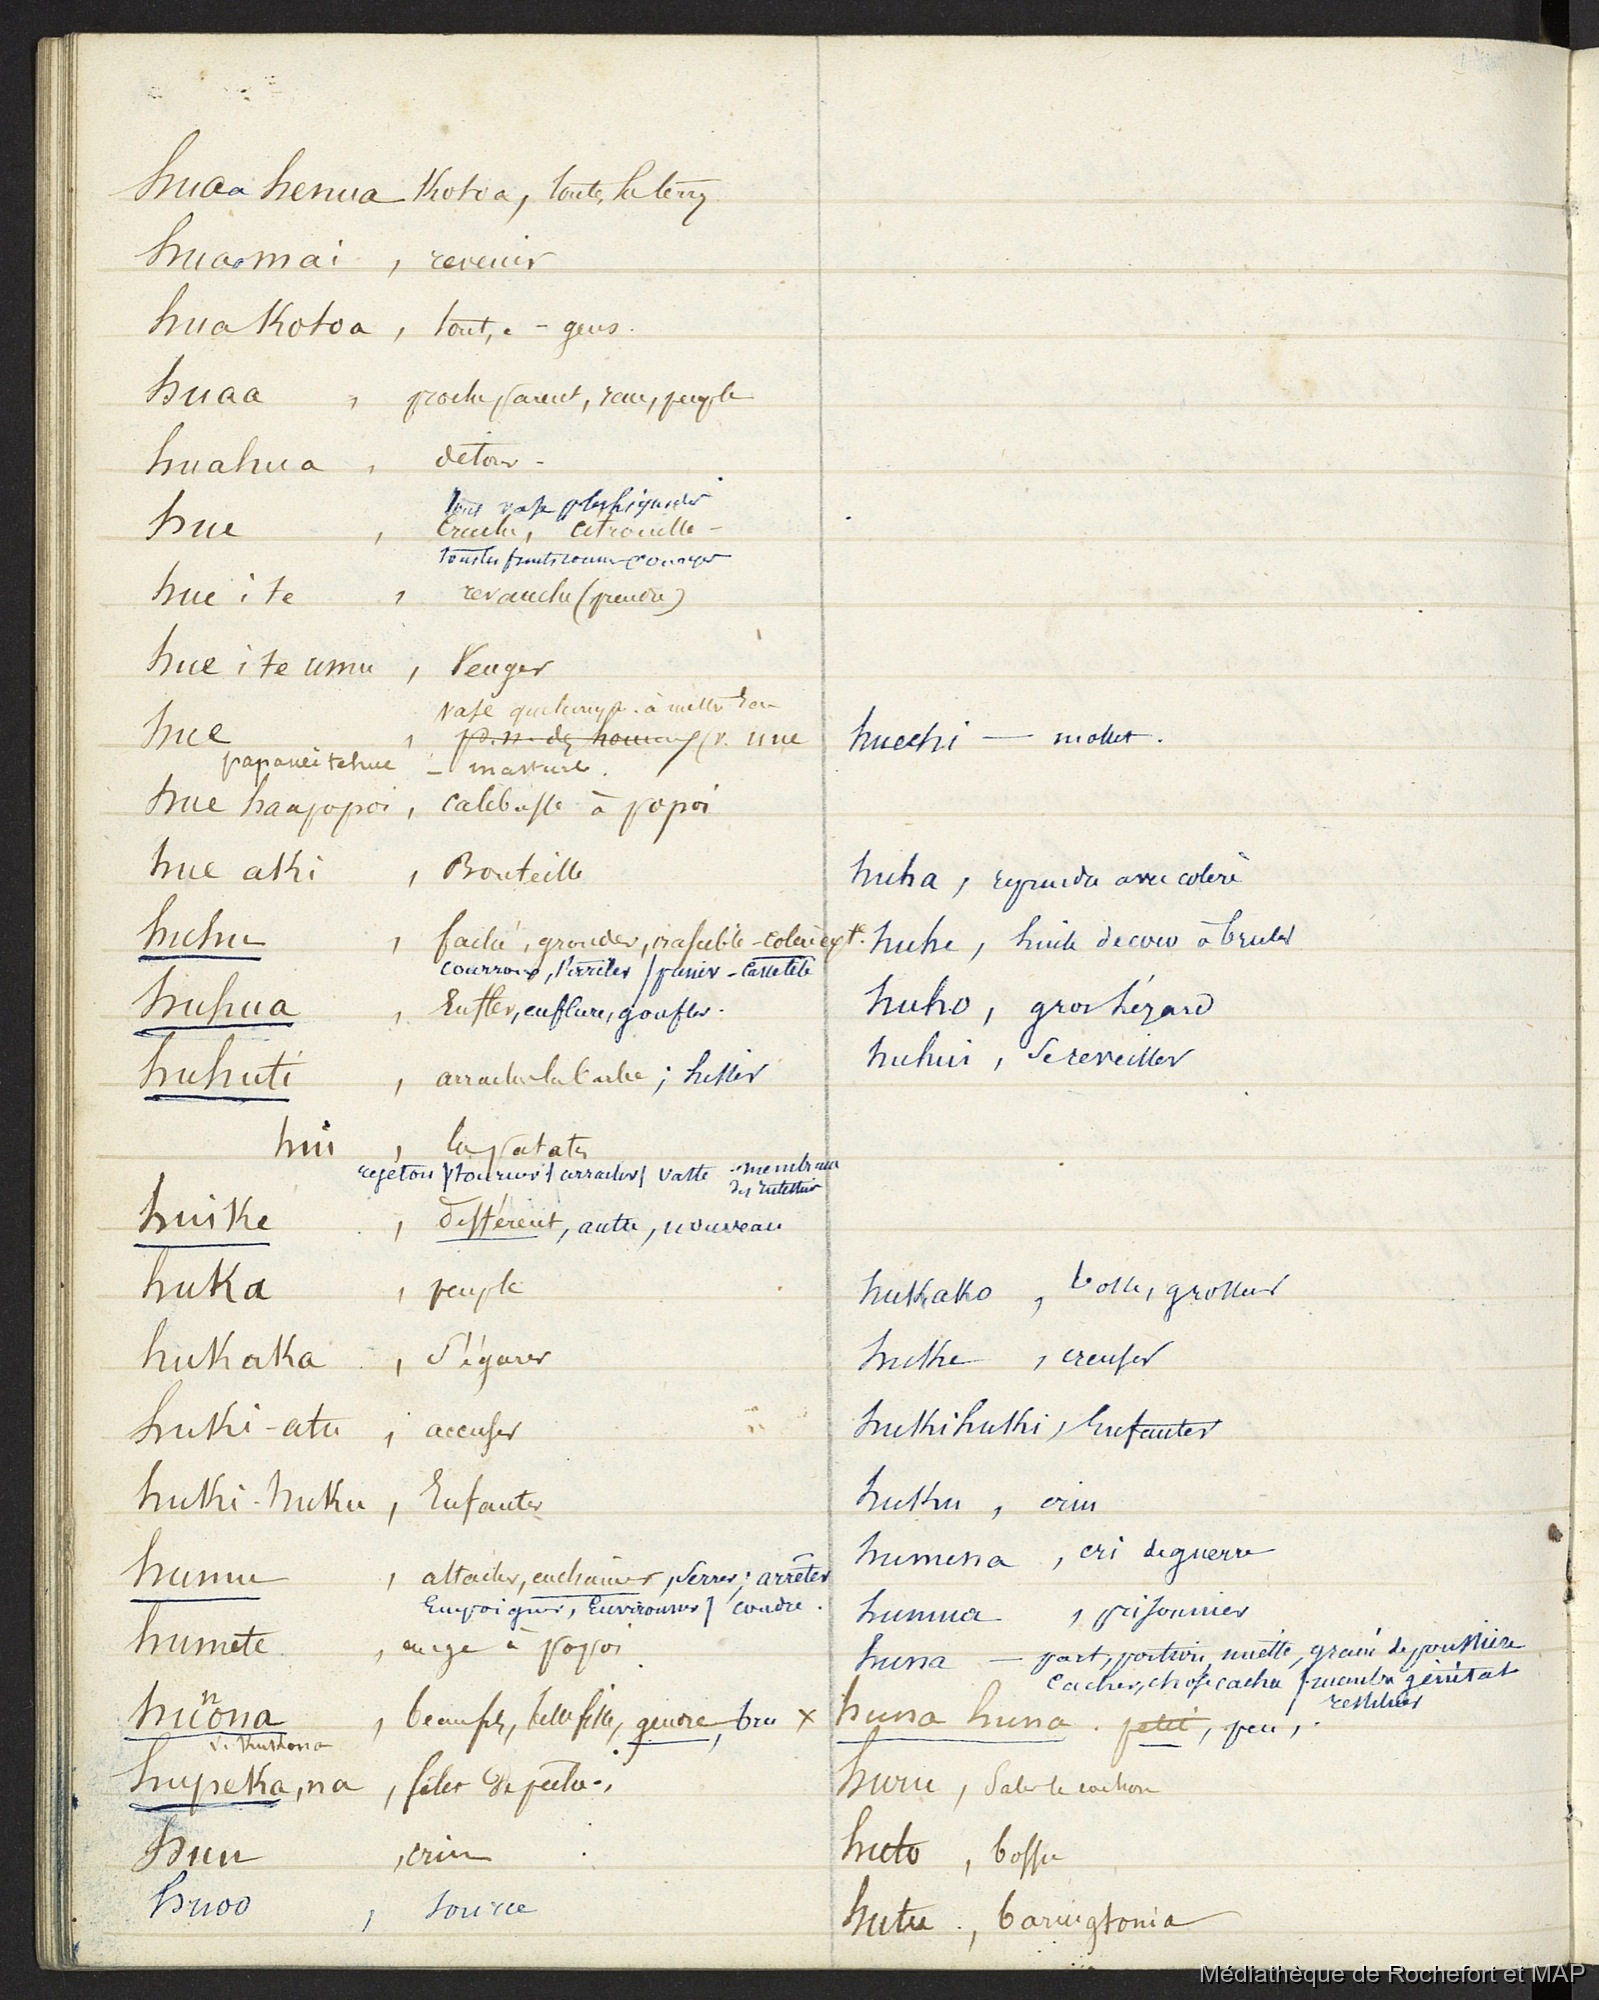 huaa henua Kotoa, toute la terre
huaomai, revenir
hua Kotoa, tout, e - gens.
huaa, proche parent, race, peuple
huahua, détour -
tout vase
hue, cruche, citrouille -
tous les fruits comme courges
hue i te, revanche (prendre)
hue i te umu, Venger
vase quelconque à mettre l'eau
hue, p. n. des hommes (v. une
papaneitehue - masture.
hue haapopoi, calebasse à popoi
hue aKi, Bouteille
huhu, faché, gronder, irascible - colère ext.
courroux, irriter / panier - Cassetête
huhua, Enfler, enflure, gonfler.
huhuti, arracher la barbe; hisser
hui, la patate
rejeton / tourner / arracher / vaste - membrane
des intestins
huiKe, différent, autre, nouveau
huKa, peuple
huKaKa, S'égarer
huKi-atu, accuser
huKi-huKu, Enfanter
humu, attacher, enchaîner, serrer; arrêter
Empoigner, Environner / coudre.
humete, auge à popoi
hunona, beaufils, belle fille, gendre, bru ×
v. hukona
hupeKa, na, filet de pêche
huu, crin
huoo, source
huehi — mollet.
huha, reprendre avec colère
huhe, huile de coco à bruler
huho, gros lézard
huhui, Se reveiller
huKaKo, bosse, grosseur
huKe, creuser
huKihuKi, Enfanter
huKu, crin
humena, cri de guerre
humua, prisonnier
huna — part, portion, miette, grain de poussière
Cacher, chose cachée / membre génital
huna huna. petit, peu,
huru, Saler le cochon
huto, bossu
hutu., baringtonia
Médiathèque de Rochefort et MAP